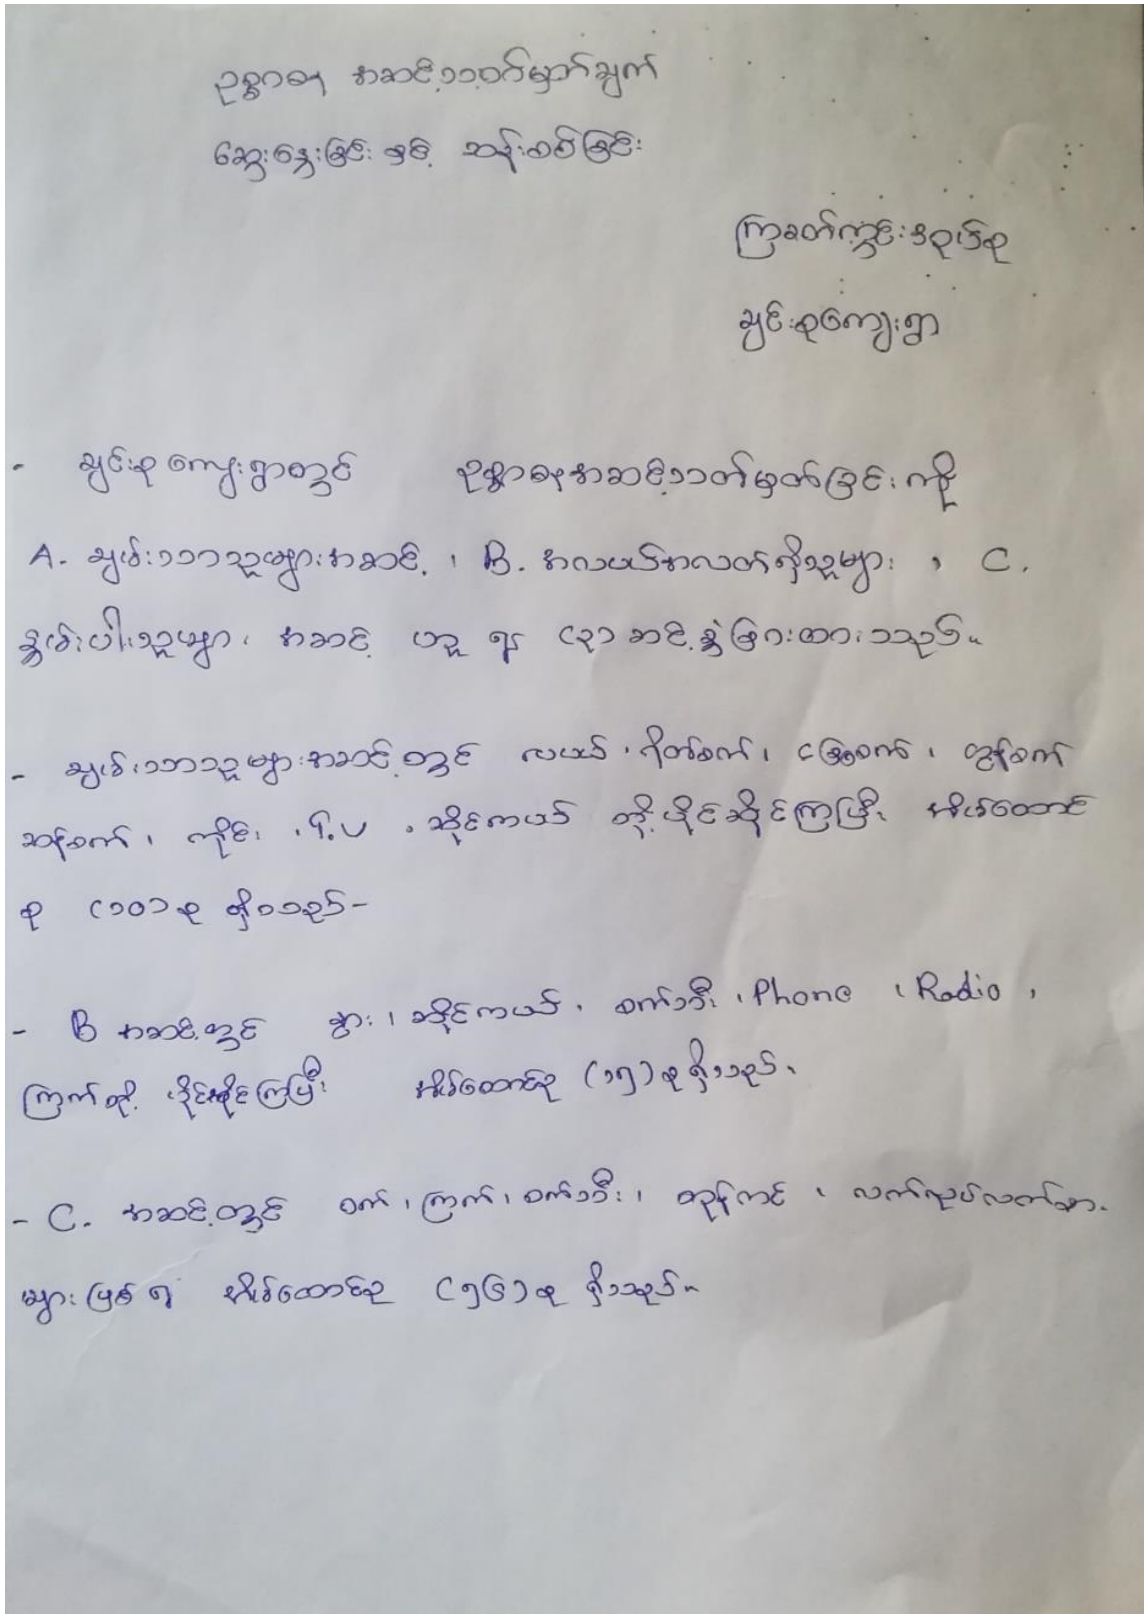 ဥစ္စာဓန အဆင့်သတ်မှတ်ချက်
ဆွေးနွေးခြင်း နှင့် ဆန်းစစ်ခြင်း
ကြခတ်ကွင်းအုပ်စု
ချင်းစုကျေးရွာ
- ချင်းစုကျေးရွာတွင် ဥစ္စာဓနအဆင့်သတ်မှတ်ခြင်းကို
A. ချမ်းသာသူများအဆင့်၊ B. အလယ်အလတ်ရှိသူများ ၊ C.
နွမ်းပါးသူများ အဆင့် ဟူ ၍ (၃) ဆင့်ခွဲခြားထားသည်။
- ချမ်းသာသူများအဆင့်တွင် လယ်၊ ရိတ်စက်၊ ခြွေစက်၊ ထွန်စက်
ဆန်စက်၊ ကျိုင်း ၊ T.V ၊ ဆိုင်ကယ် တို့ပိုင်ဆိုင်ကြပြီး အိမ်ထောင်
စု (၁၀) စု ရှိသည်-
- B အဆင့်တွင် နွား၊ ဆိုင်ကယ်၊ စက်ဘီး ၊ Phone ၊ Radio ၊
ကြက်တို့ ပိုင်ဆိုင်ကြပြီး အိမ်ထောင်စု (၁၅) စု ရှိသည်။
- C. အဆင့်တွင် ဝက်၊ ကြက်၊ စက်ဘီး၊ ထွန်ကင် ၊ လက်လုပ်လက်စား
များဖြစ်၍ အိမ်ထောင်စု (၅၆) စု ရှိသည်။